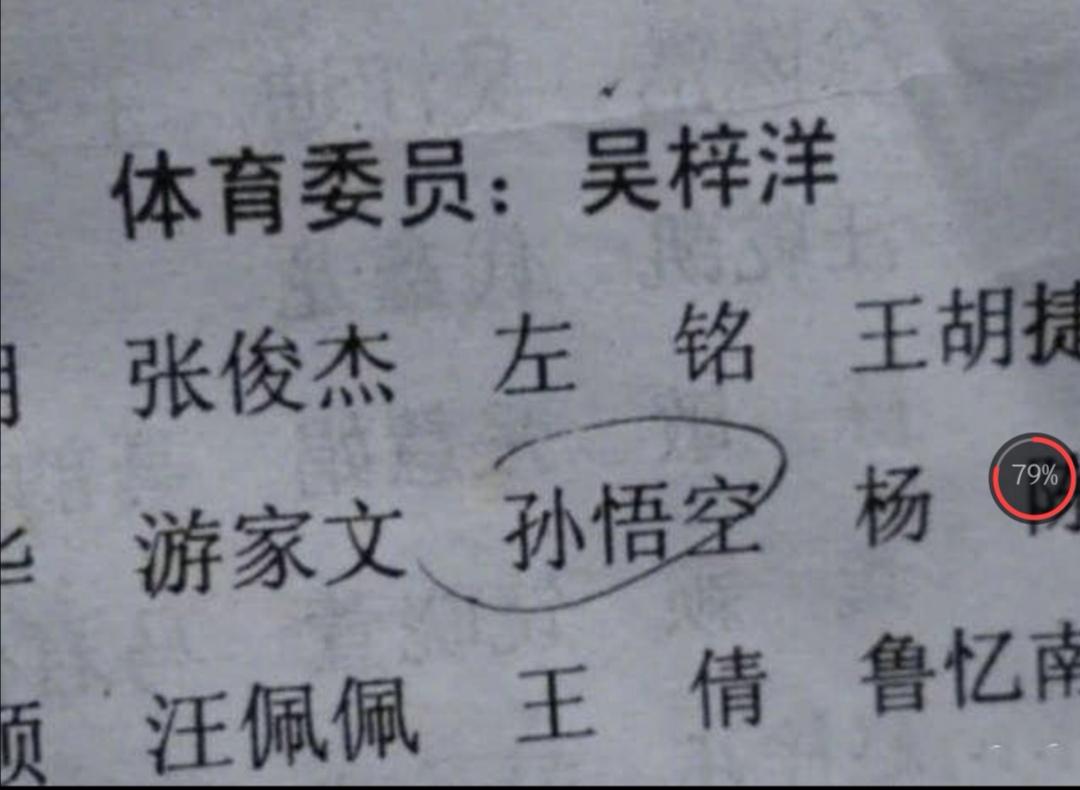 体育委员：吴梓洋
张俊杰 左 铭 王胡捷
游家文 孙悟空 杨
79%
汪佩佩 王 倩 鲁忆南